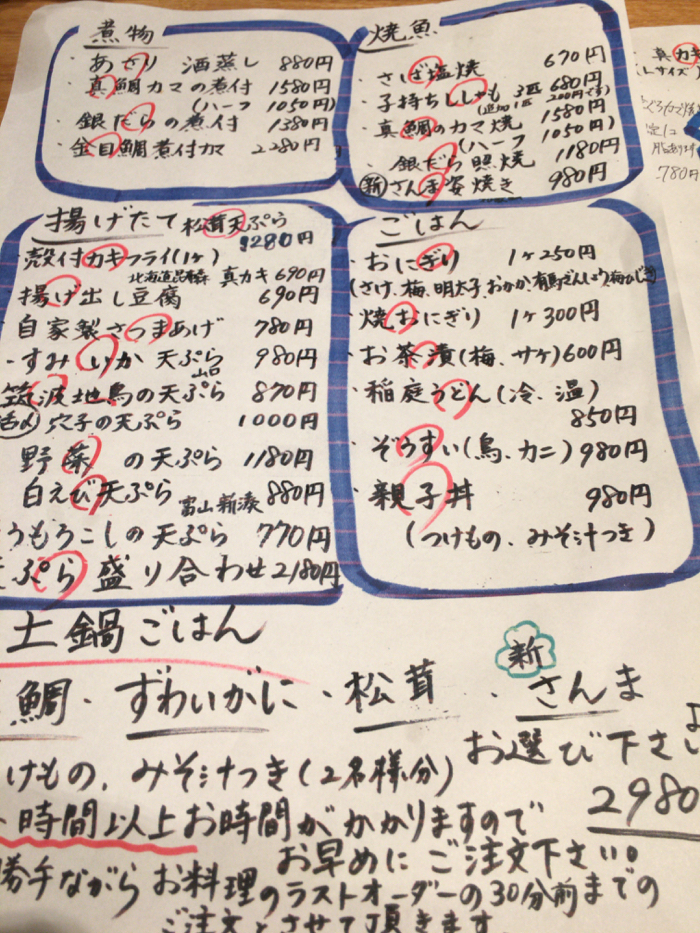 煮物
・あさり 酒蒸し 880円
・真鯛カマの煮付 1580円
(ハーフ 1050円)
・銀だらの煮付 1380円
・金目鯛煮付カマ 2280円
焼魚
・さば塩焼 670円
・子持ちししゃも 3匹 680円
(追加1匹 200円です)
・真鯛のカマ焼 1580円
(ハーフ 1050円)
・銀だら照焼 1180円
新 さんま姿焼き 980円
・真カキ
(Lサイズ)
780円
揚げたて 松茸天ぷら
1280円
殻付カキフライ(1ケ)
北海道昆布森 真カキ 690円
揚げ出し豆腐 690円
自家製さつまあげ 780円
・すみいか 天ぷら 980円
山口
筑波地鳥の天ぷら 870円
活〆 穴子の天ぷら 1000円
野菜の天ぷら 1180円
白えび天ぷら 富山新湊 880円
うもろこしの天ぷら 770円
ぷら盛り合わせ 2180円
ごはん
・おにぎり 1ヶ250円
(さけ、梅、明太子、おかか、有馬ざんしょう、梅ひじき)
・焼おにぎり 1ヶ300円
・お茶漬(梅、サケ)600円
・稲庭うどん(冷、温)
850円
・ぞうすい(鳥、カニ)980円
・親子丼 980円
(つけもの、みそ汁つき)
土鍋ごはん
鯛・ずわいがに・松茸・新 さんま
お選び下さい
けもの、みそ汁つき(2名様分)
2980
時間以上お時間がかかりますので
お早めにご注文下さい。
勝手ながらお料理のラストオーダーの30分前までの
ご注文とさせて頂きます